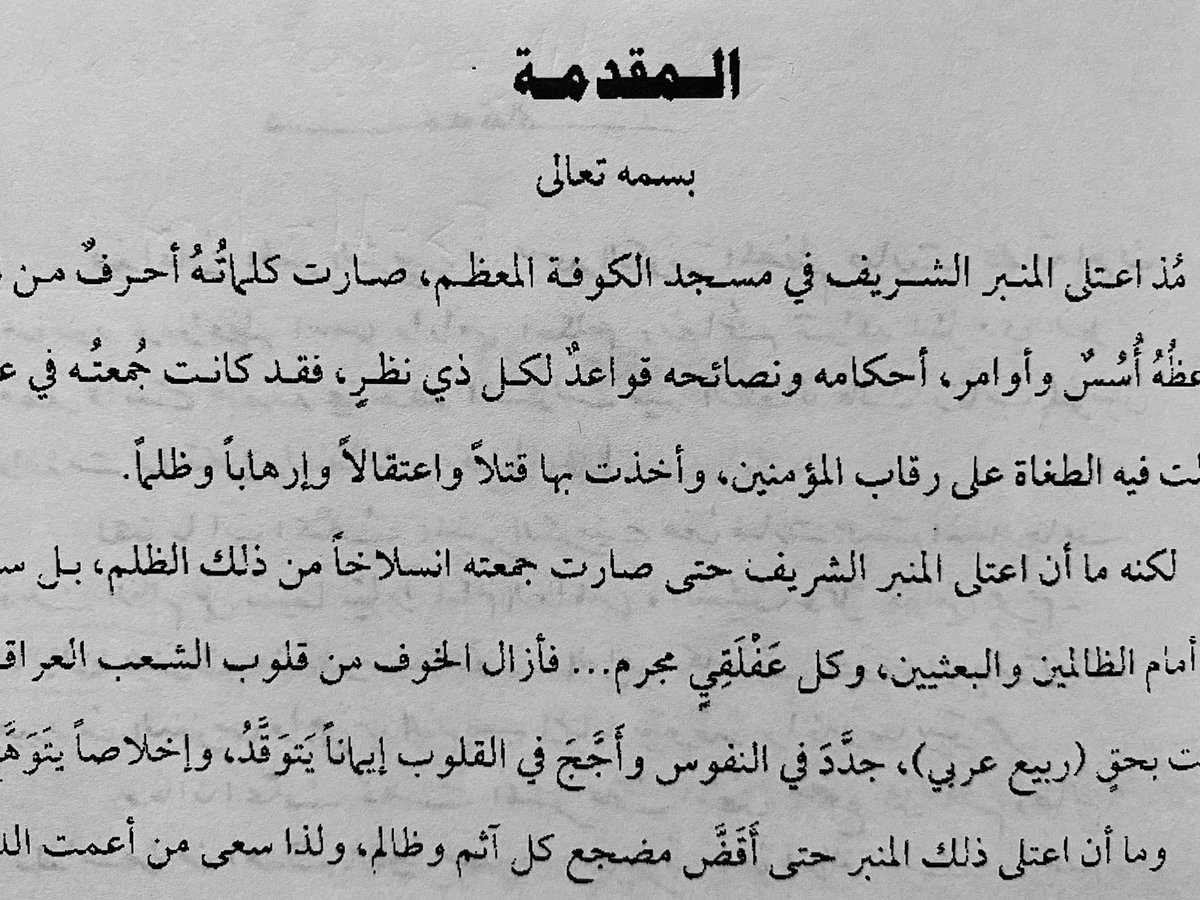 المقدمة
بسمه تعالى
مُذ اعتلى المنبر الشريف في مسجد الكوفة المعظم، صارت كلماتُهُ أحرفٌ من
أُسُسٌ وأوامر، أحكامه ونصائحه قواعدٌ لكل ذي نظرٍ، فقد كانت جُمعتُه في
فيه الطغاة على رقاب المؤمنين، وأخذت بها قتلاً واعتقالاً وإرهاباً وظلماً.
لكنه ما أن اعتلى المنبر الشريف حتى صارت جمعته انسلاخاً من ذلك الظلم، بل
أمام الظالمين والبعثيين، وكل عَفْلَقِيٍ مجرم... فأزال الخوف من قلوب الشعب
بحقٍ (ربيع عربي)، جدَّدَ في النفوس وأَجَّجَ في القلوب إيماناً يَتوَقَّدُ، وإخلاصاً
وما أن اعتلى ذلك المنبر حتى أَقَضَّ مضجع كل آثم وظالم، ولذا سعى من أعمت